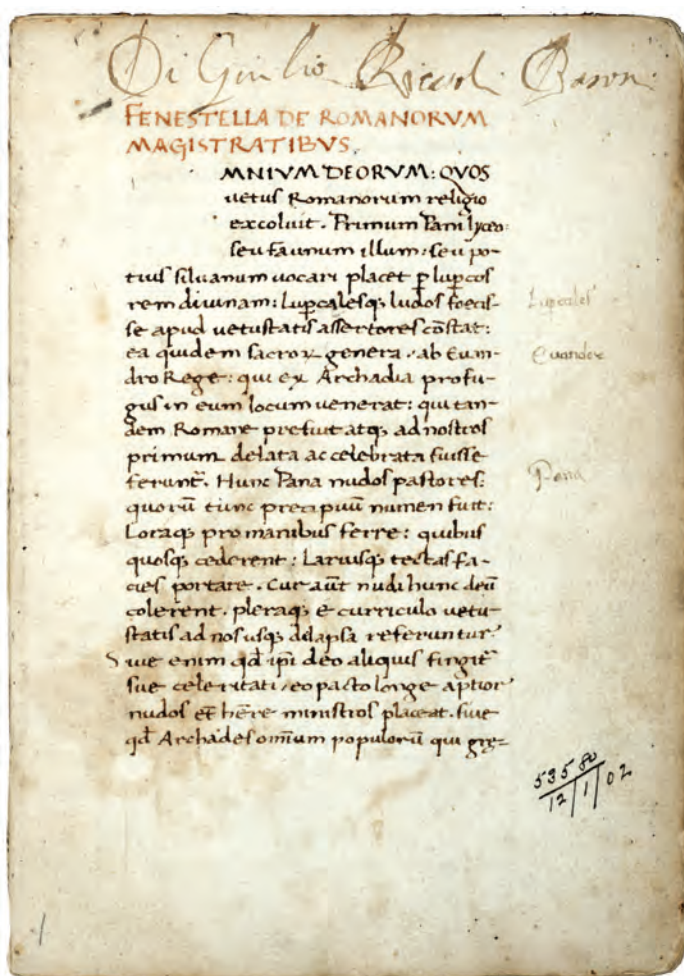 Di Giulio Baron
FENESTELLA DE ROMANORVM
MAGISTRATIBVS.
MNIVM DEORVM: QVOS
uetus Romanorum religio
excoluit. Primum Pani lyceo:
seu faunum illum: seu po-
tius siluanum uocari placet ꝑ luꝑcos
rem diuinam: luꝑcalesqꝫ ludos foecis-
se apud uetustatis assertores cōstat:
ea quidem sacroꝝ genera, ab Euan-
dro Rege: qui ex Archadia profu-
gus in eum locum uenerat: qui tan-
dem Romane prefuit atqꝫ ad nostros
primum delata ac celebrata fuisse
ferunt̃. Hunc Pana nudos pastores:
quorū tunc precipuū numen fuit:
Loraqꝫ pro manibus ferre: quibus
quosqꝫ cederent: Laruisqꝫ tectas fa-
cies portare. Cur aūt nudi hunc deū
colerent. pleraqꝫ e curriculo uetu-
statis ad nos usqꝫ delapsa referuntur.
Siue enim qđ ip̄i deo aliquis fingit̃
sue celeritati, eo pacto longe aptior
nudos et hēre ministros placeat. siue
qđ Archades omium populorū qui gre-
Lupcales
Euander
Pana
535 80
12/1/02
1